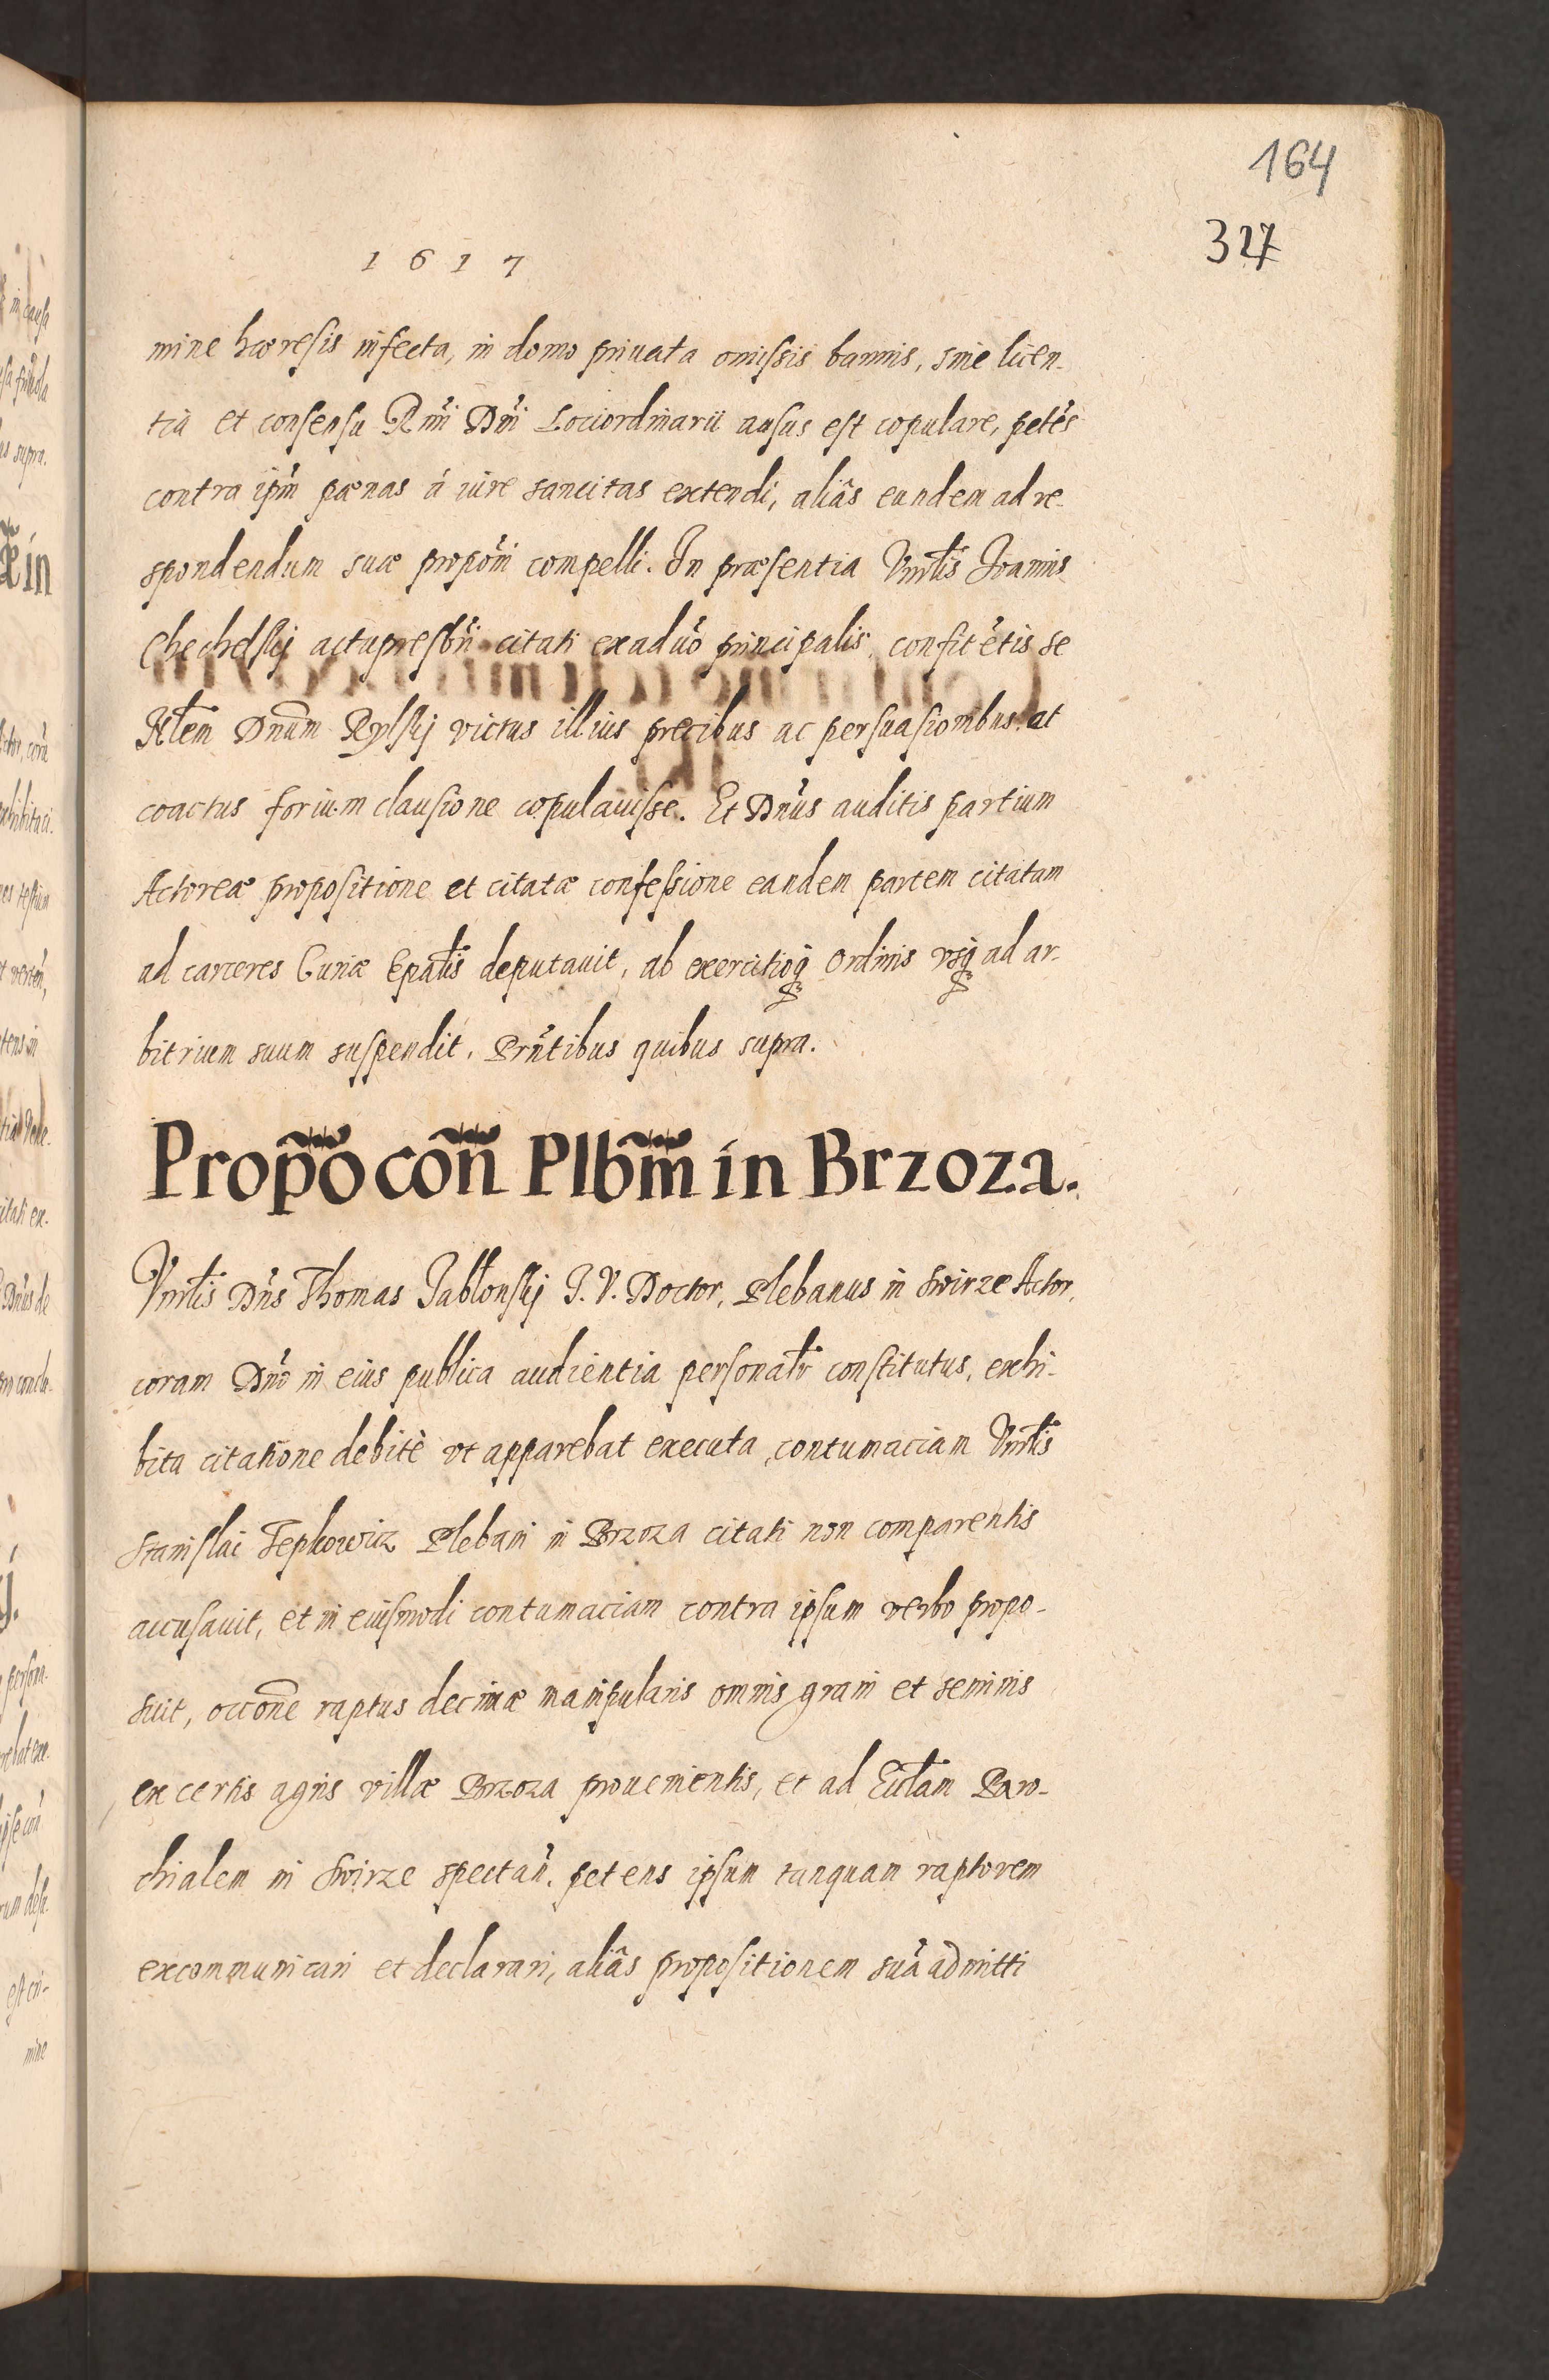 164
327
1617
mine hæresis infecta, in domo priuata omissis bannis, sine licen-
tia et consensu Rmi Dni Lociordinarii ausus est copulare, petēs
contra ipm pœnas à iure sancitas extendi, aliâs eundem ad re-
spondendum suæ propōni compelli. In præsentia Vnrlis Joannis
Chechelskj actu presbri citati ex aduo principalis, confitētis se
Nlem Dnum Rylskj victus illius precibus ac persuasionibus, at
coactus forium clausione copulauisse. Et Dnus auditis partium
Actoreæ propositione et citatæ confessione eandem partem citatam
ad carceres Curiæ Epalis deputauit, ab exercitioq Ordinis vsq ad ar-
bitrium suum suspendit. Prntibus quibus supra.
Propo͠ con͠ Plbm͠ in Brzoza.
Vnrlis Dns Thomas Jablonskj J. V. Doctor, Plebanus in Swirze Actor,
coram Dno in eius publica audientia personalr constitutus, exhi-
bita citatione debitè vt apparebat executa, contumaciam Vnrlis
Stanislai Plebani in Brzoza citati non comparentis
accusauit, et in eiusmodi contumaciam contra ipsum verbo propo-
suit, occone raptus decimæ manipularis omnis grani et seminis
ex certis agris villæ Brzoza prouenientis, et ad Ecclam Paro-
chialem in Swirze spectan. petens ipsum tanquam raptorem
excommunicari et declarari, aliâs propositionem suā admitti